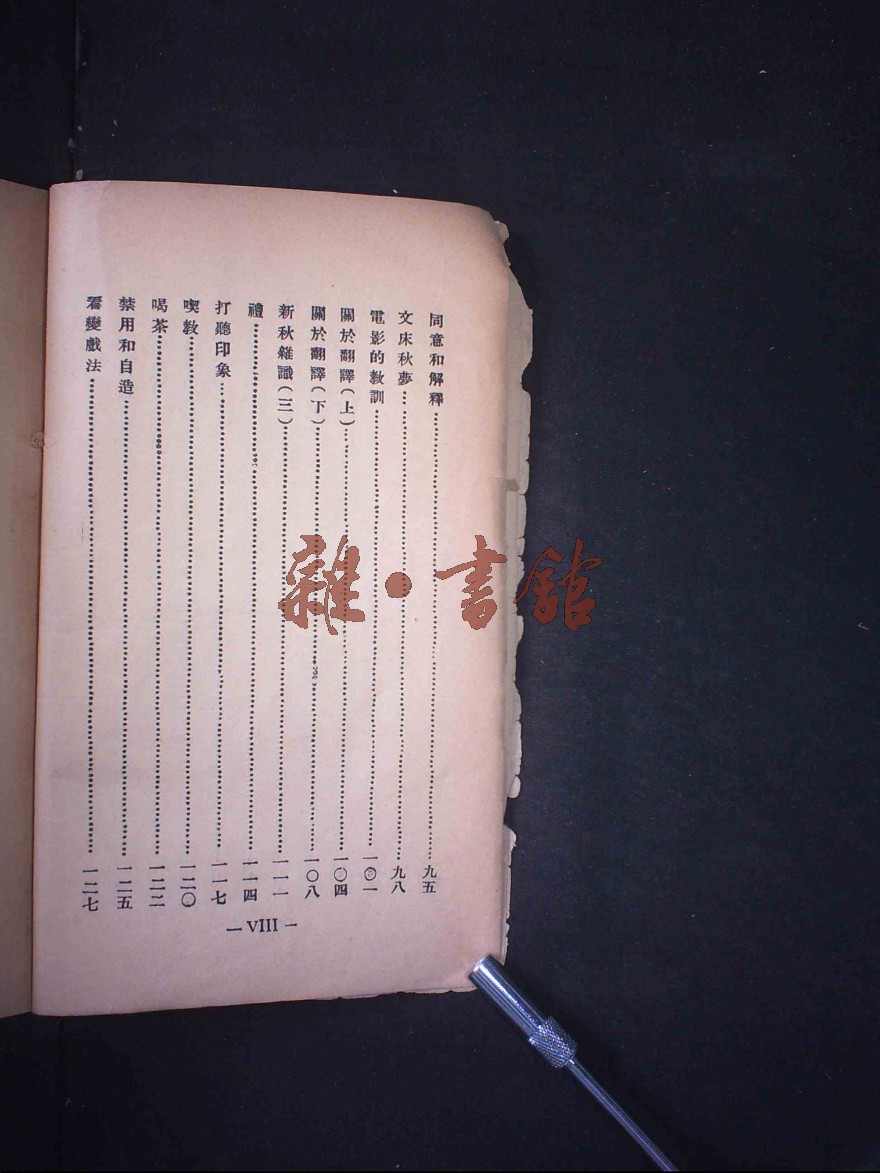 同意和解釋……九五
文床秋夢……九八
電影的敎訓……一〇一
關於翻譯(上)……一〇四
關於翻譯(下)……一〇八
新秋雜識(三)……一一一
禮……一一四
打聽印象……一一七
喫敎……一二〇
喝茶……一二二
禁用和自造……一二五
看變戲法……一二七
— VIII —
雜·書館